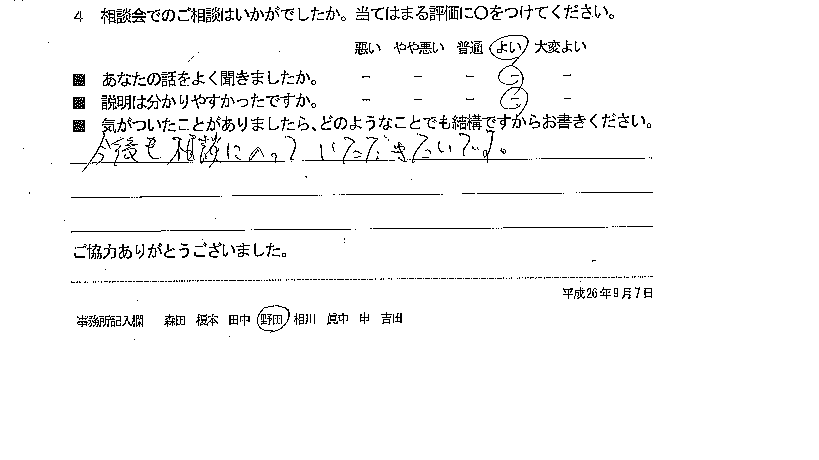 4 相談会でのご相談はいかがでしたか。当てはまる評価に〇をつけてください。
悪い やや悪い 普通 よい 大変よい
■ あなたの話をよく聞きましたか。 － － － － －
■ 説明は分かりやすかったですか。 － － － － －
■ 気がついたことがありましたら、どのようなことでも結構ですからお書きください。
今後も相談にのっていただきたいです。
ご協力ありがとうございました。
平成26年9月7日
事務所記入欄 森田 榎本 田中 野田 相川 眞中 申 吉田